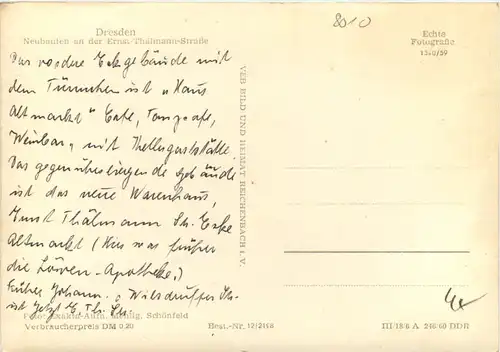 8010
Dresden
Neubauten an der Ernst-Thälmann-Straße
Echte
Fotografie
Das vordere Eckgebäude mit
dem Türmchen ist "Haus
Altmarkt" Café, Tanzcafé,
Weinbar, mit Kellergaststätte.
Das gegenüberliegende Gebäude
ist das neue Warenhaus,
Ernst Thälmann Str. Ecke
Altmarkt (Hier war früher
die Löwen-Apotheke.)
Früher Johann- u Wilsdruffer Str.
ist jetzt E. Th. Str.
VEB BILD UND HEIMAT REICHENBACH i. V.
Foto: Exakta-Aufn. Schönfeld
Verbraucherpreis DM 0,20
Best.-Nr. 12/2168
III/18/6 A 246/60 DDR